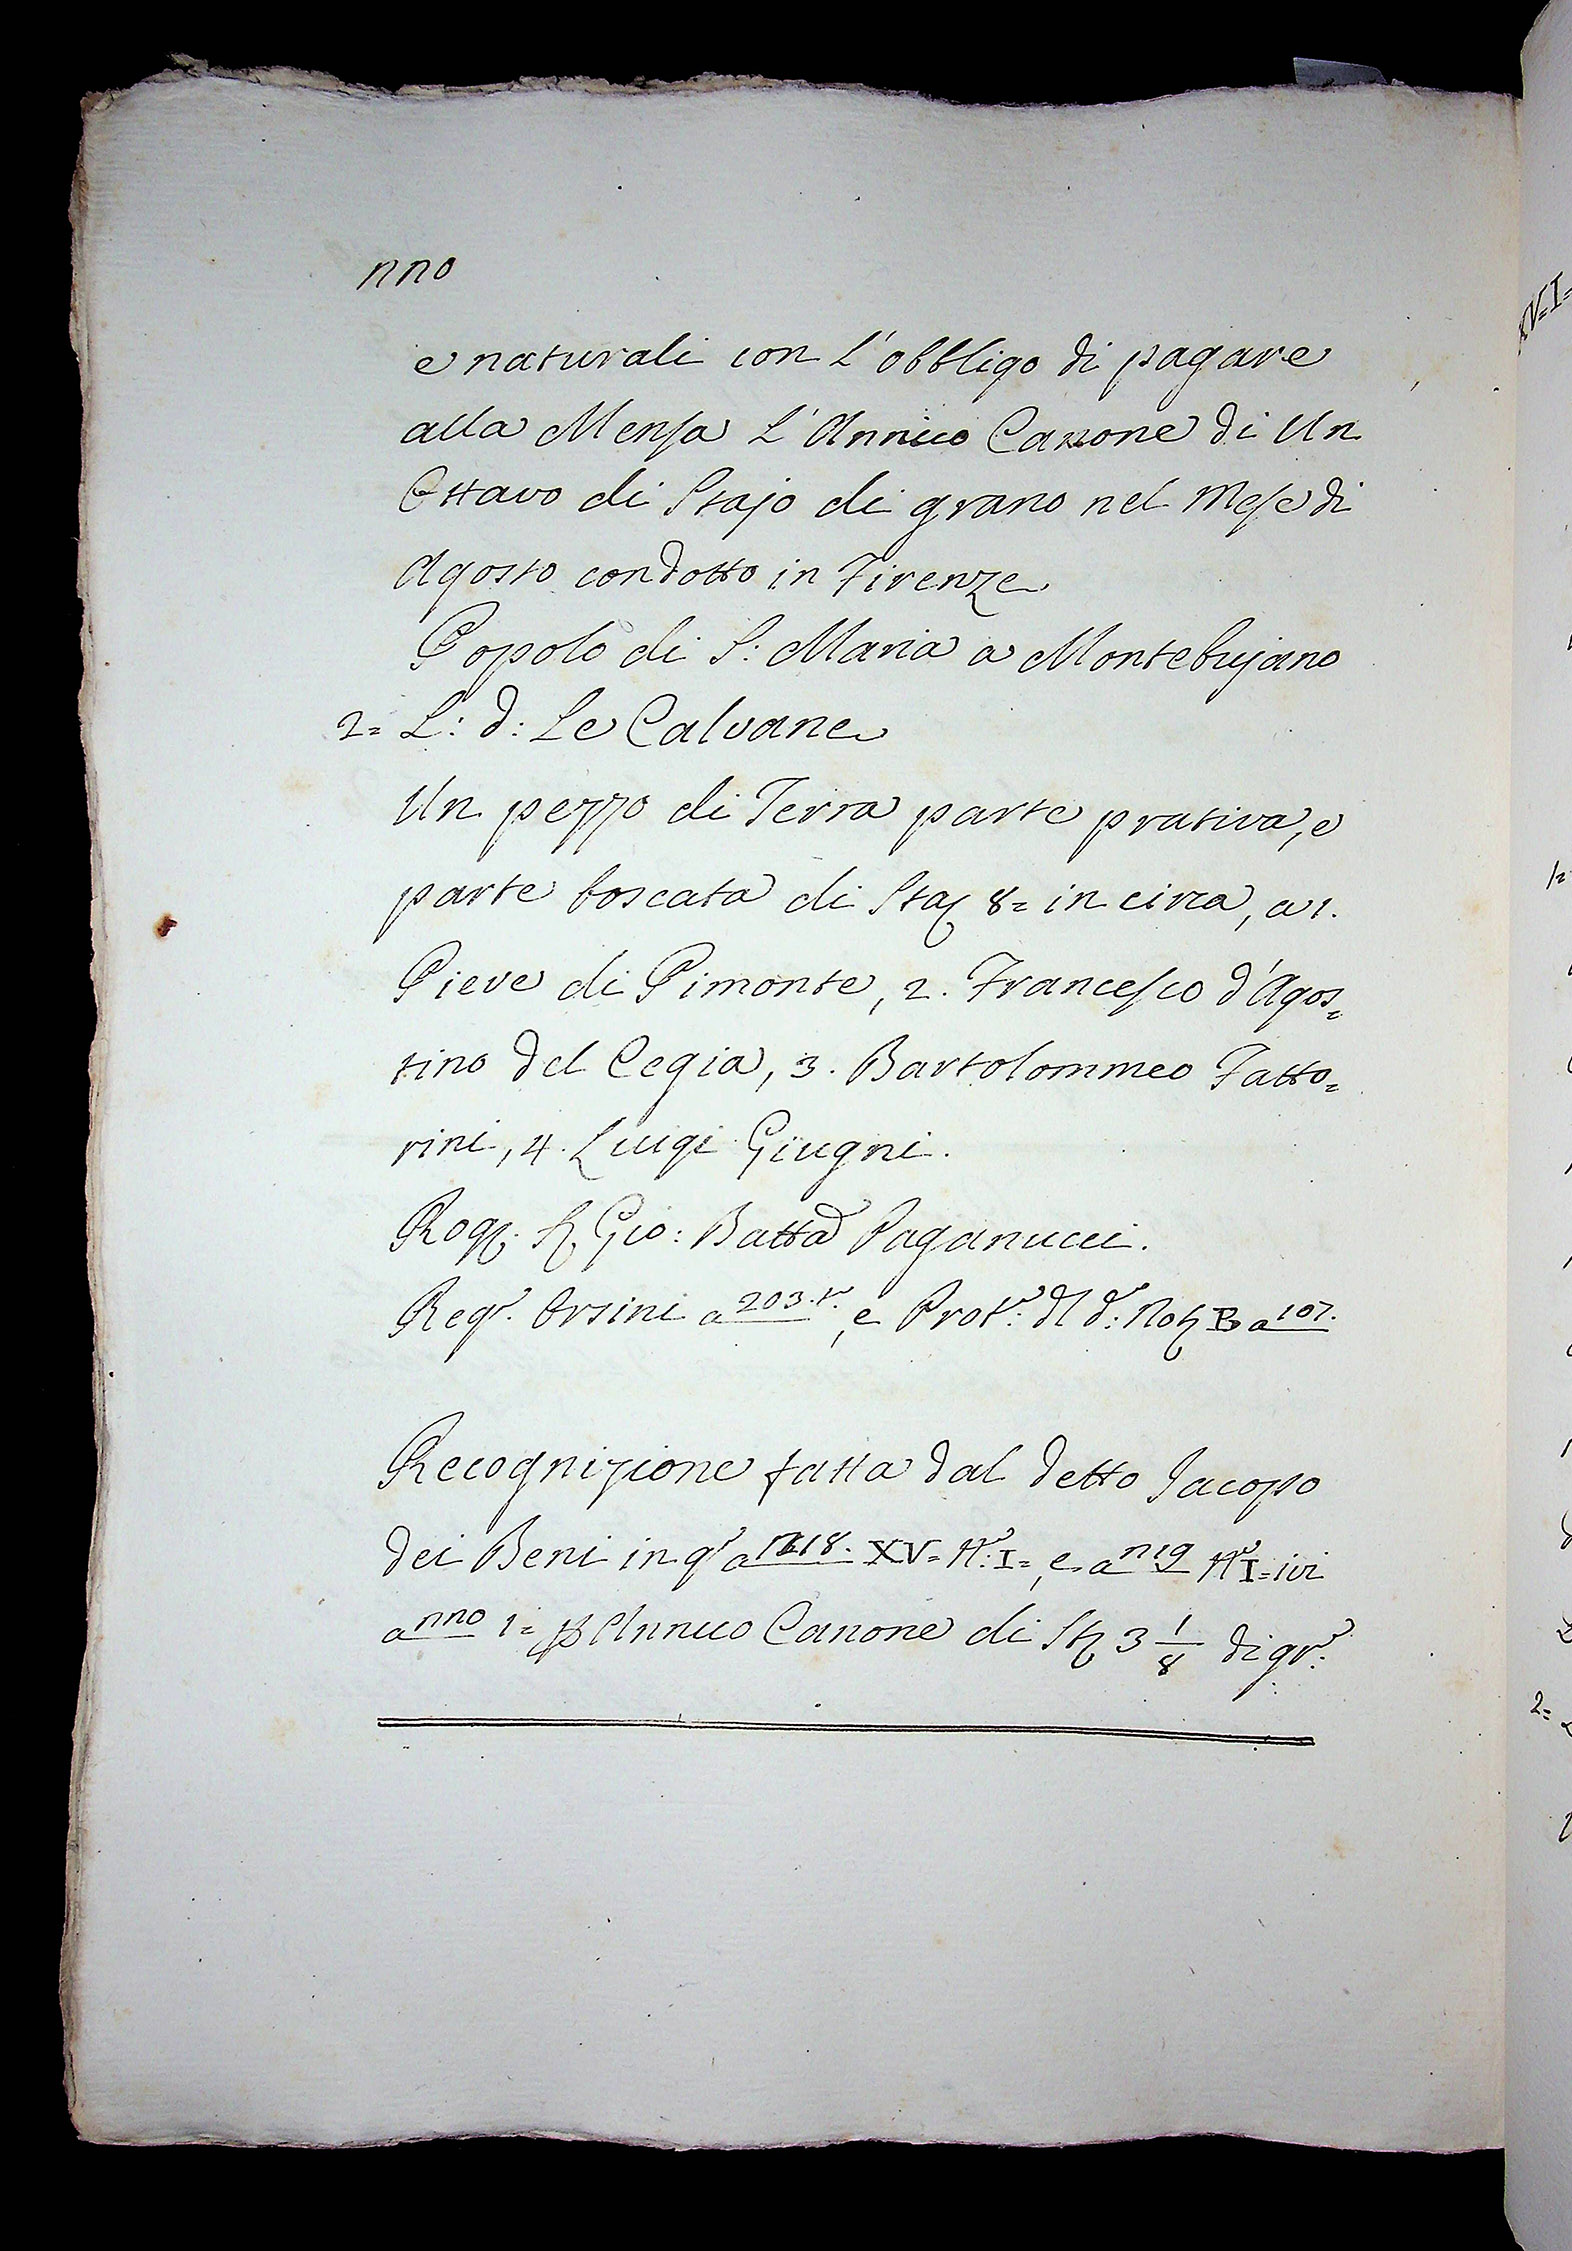 nno
e naturali con L'obbligo di pagare
alla Mensa L'Annuo Canone di Un
Ottavo di Stajo di grano nel Mese di
Agosto condotto in Firenze
Popolo di S: Maria a Montebujano
2= L: d: Le Calvane
Un pezzo di Terra parte prativa, e
parte boscata di Staj 8= in circa, a 1.
Pieve di Pimonte, 2. Francesco d'Agos=
tino del Cegia, 3. Bartolommeo Fatto=
rini, 4. Luigi Giugni.
Rog. Gio: Batta Paganucci.
Regr. Orsini a 203.t., e Prot: dl d: Not B a 107.
Recognizione fatta dal detto Jacopo
dei Beni in q a XV= N: I=, e a n19 N I= ivi
a nno 1= p Annuo Canone di St 3 1/8 di gr:
XV=I=
1=
2=